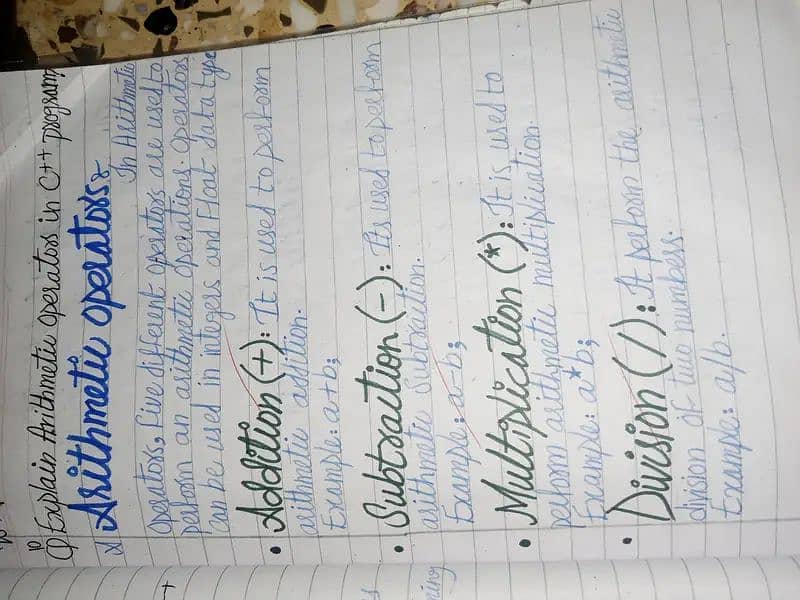 10
Q) Explain Arithmetic operators in C++ program?
Arithmetic operators:
In Arithmetic
operators, Five different operators are used to
perform an arithmetic operations. Operators
can be used in integers and Float data type
• Addition (+): It is used to perform
arithmetic addition.
Example: a+b;
• Subtraction (-): Its used to perform
arithmetic Subtraction.
Example: a-b;
• Multiplication (*): It is used to
perform arithmetic multiplication.
Example: a*b;
• Division (/): It perform the arithmetic
division of two numbers.
Example: a/b.